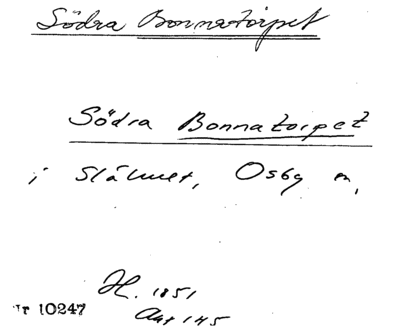 Södra Bonnatorpet
Södra Bonnatorpet
i Slähult, Osby
H. 1851
Akt 145
Nr 10247